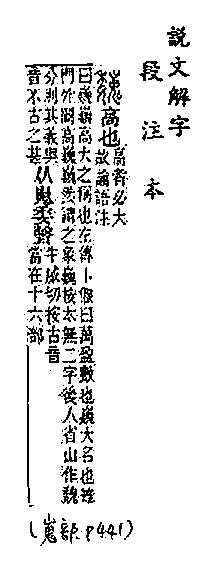 說文解字
段注本
巍高也高者必大
故論語注
曰巍巍高大之稱也左傳卜偃曰萬盈數也巍大名也雉
門外闕高巍巍然謂之象巍按本無二字後人省山作魏
分別其義與
音不古之甚
从嵬委聲
牛威切按古音
當在十六部
(嵬部 P441)